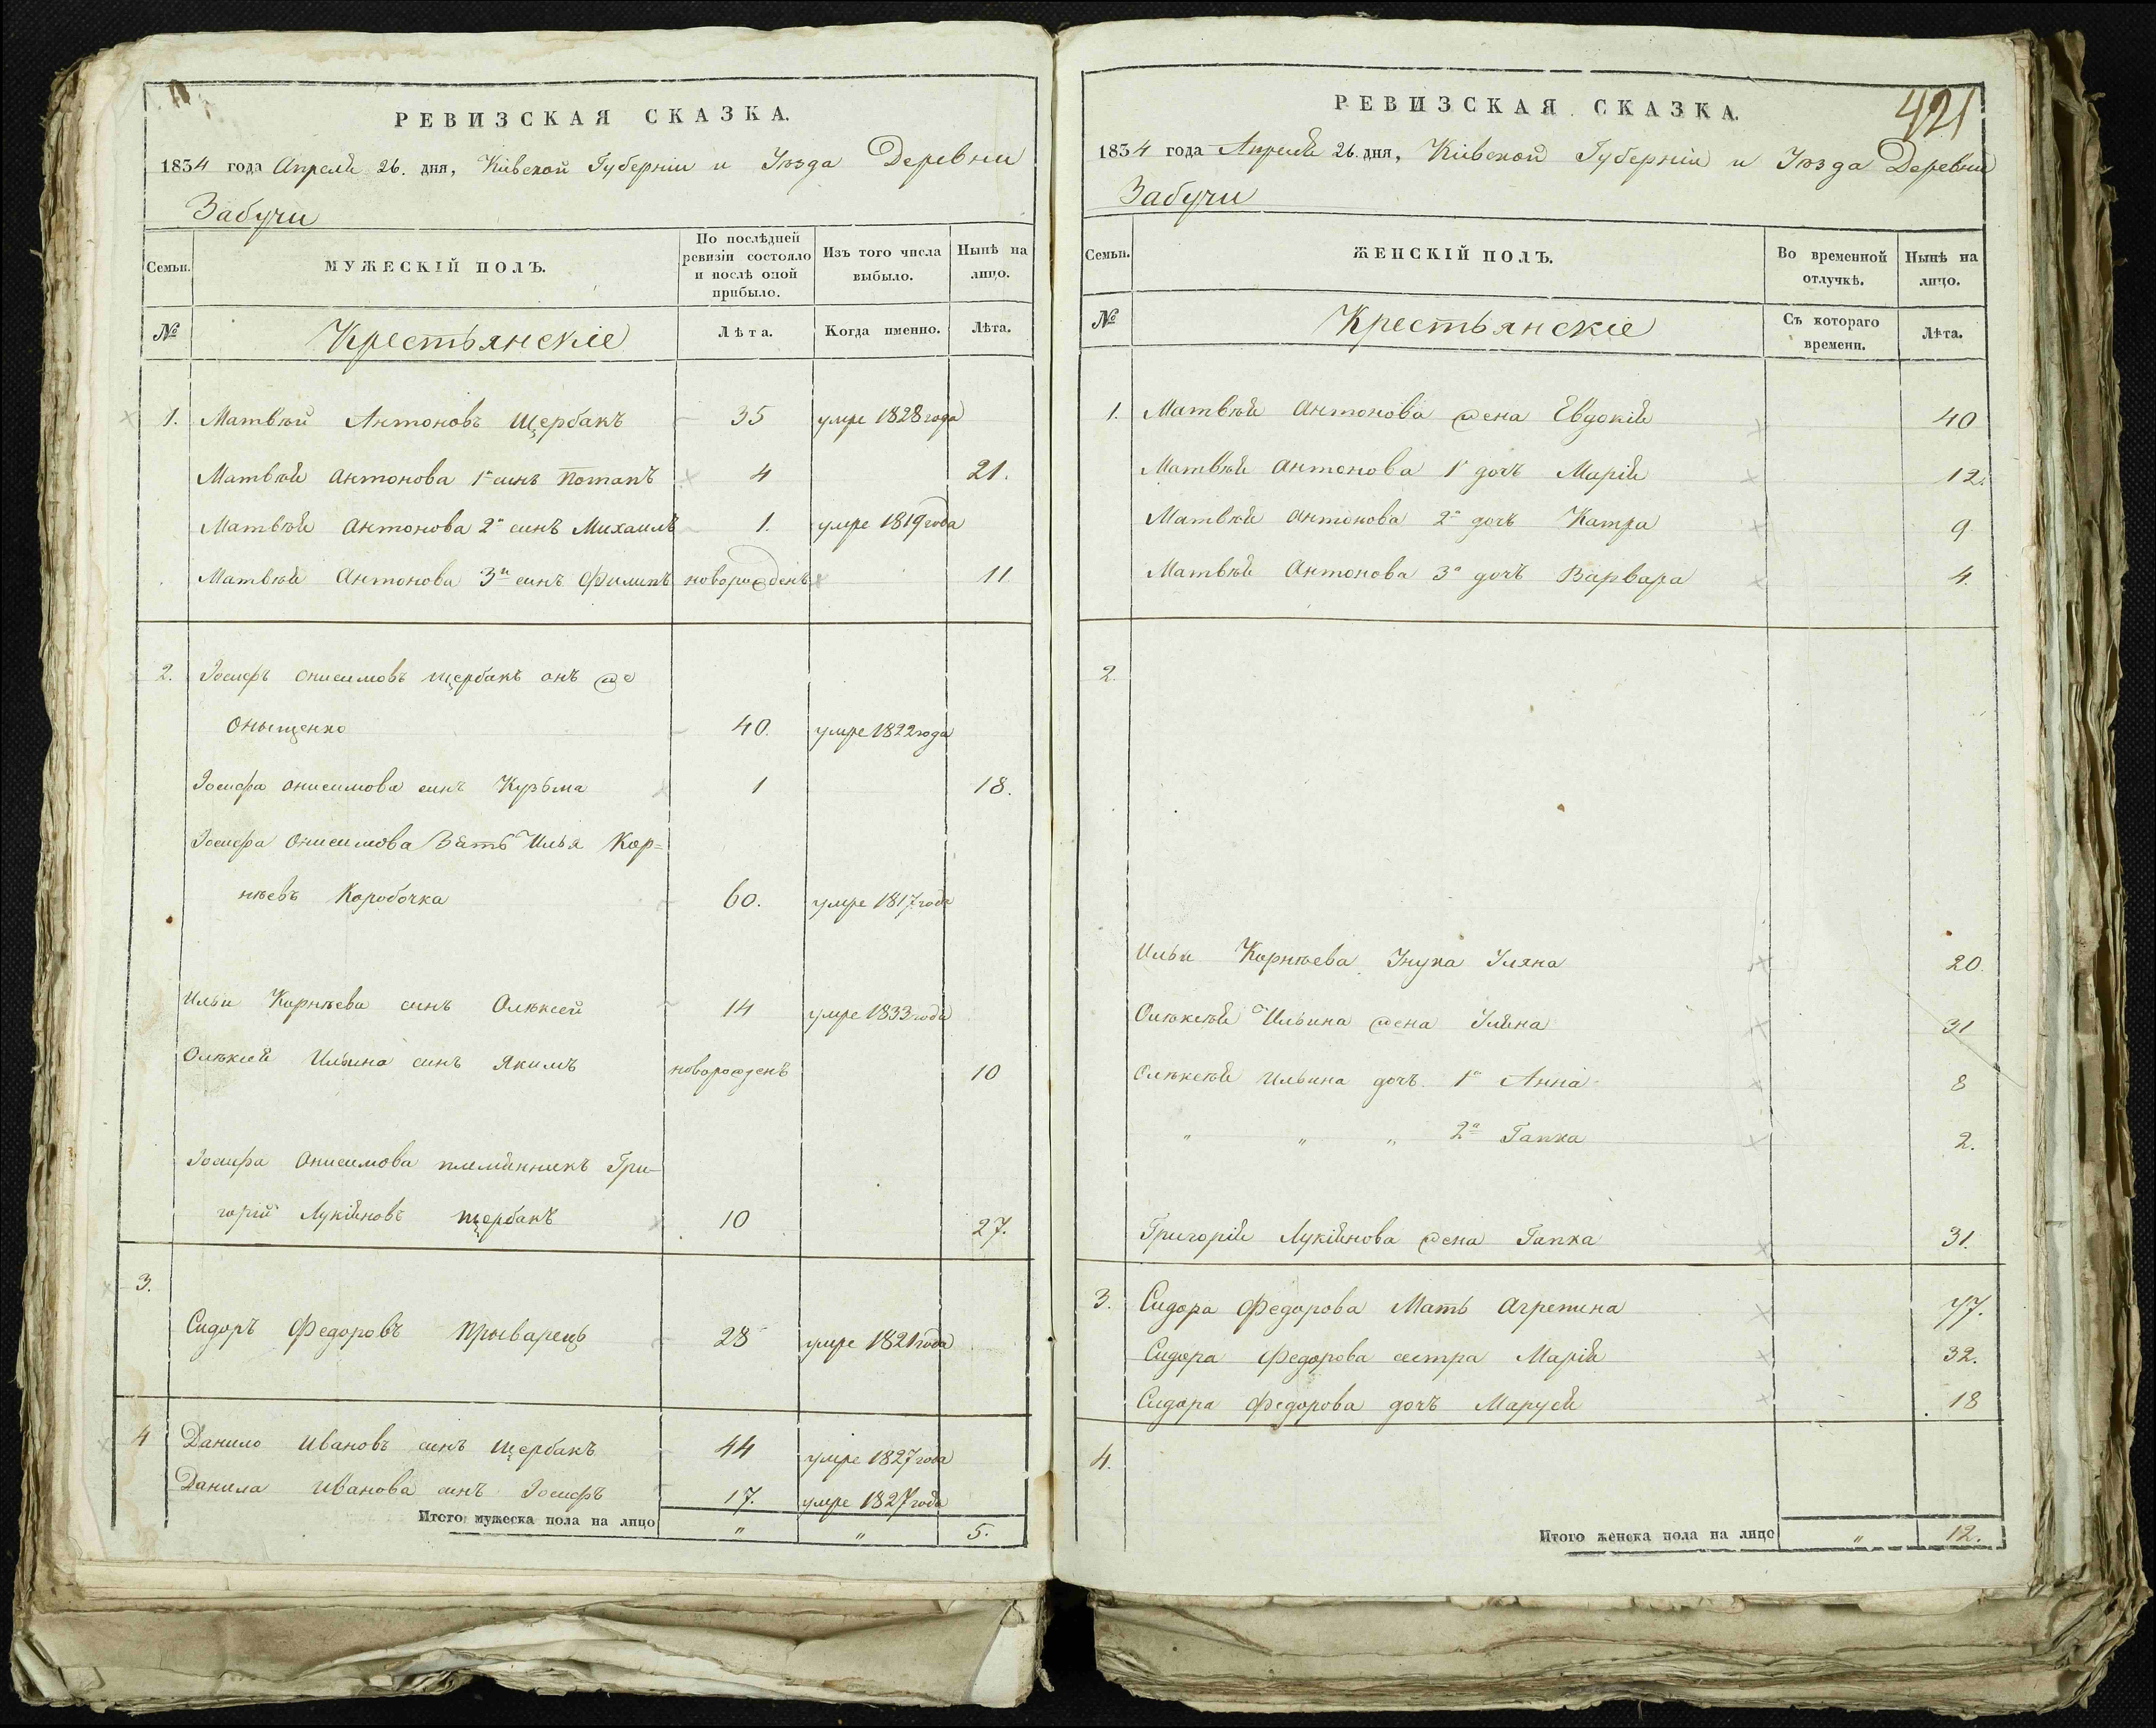 РЕВИЗСКАЯ СКАЗКА.
1834 года Апреля 26. дня, Кіевской Губерніи и Уѣзда Деревни
Забучи
Семьи.
МУЖЕСКІЙ ПОЛЪ.
По послѣдней ревизіи состояло и послѣ оной прибыло.
Изъ того числа выбыло.
Нынѣ на лицо.
№
Крестьянскіе
Лѣта.
Когда именно.
Лѣта.
1. Матвѣй Антоновъ Щербакъ 35 умре 1828 года
Матвѣя Антонова 1й синъ Потапъ 4 21.
Матвѣя Антонова 2й синъ Михаилъ 1. умре 1819 года
Матвѣя Антонова 3й синъ Филипъ новорожденъ 11
2. Іосифъ Онисимовъ Щербакъ онъ же
Оныщенко 40. умре 1822 года
Іосифа Онисимова синъ Кузьма 1 18.
Іосифа Онисимова Зять Илья Кор=
нѣевъ Коробочка 60. умре 1817 года
Ильи Корнѣева синъ Олѣксей 14 умре 1833 года
Олѣксея Ильина синъ Якимъ новорожденъ 10
Іосифа Онисимова племянникъ Гри-
горій Лукіяновъ Щербакъ 10 27.
3.
Сидоръ Федоровъ Прыварецъ 28 умре 1821 года
4 Данило Ивановъ синъ Щербакъ 44 умре 1827 года
Данила Иванова синъ Іосифъ 17. умре 1827 года
Итого мужеска пола на лицо " " 5.
421
РЕВИЗСКАЯ СКАЗКА.
1834 года Апреля 26. дня, Кіевской Губерніи и Уѣзда Деревни
Забучи
Семьи.
ЖЕНСКІЙ ПОЛЪ.
Во временной отлучкѣ.
Нынѣ на лицо.
№
Крестьянскіе
Съ котораго времени.
Лѣта.
1. Матвѣя Антонова жена Евдокія 40
Матвѣя Антонова 1я дочъ Марія 12.
Матвѣя Антонова 2я дочъ Катра 9
Матвѣя Антонова 3я дочъ Варвара 4.
2.
Ильи Корнѣева Унука Уляна 20.
Олѣксѣя Ильина жена Уляна 31
Олѣксѣя Ильина дочъ 1я Анна 8
" " " 2я Гапка 2.
Григорія Лукіянова жена Гапка 31.
3. Сидора Федорова Мать Агрепина 77.
Сидора Федорова сестра Марія 32.
Сидора Федорова дочъ Маруся 18
4.
Итого женска пола на лицо " 12.